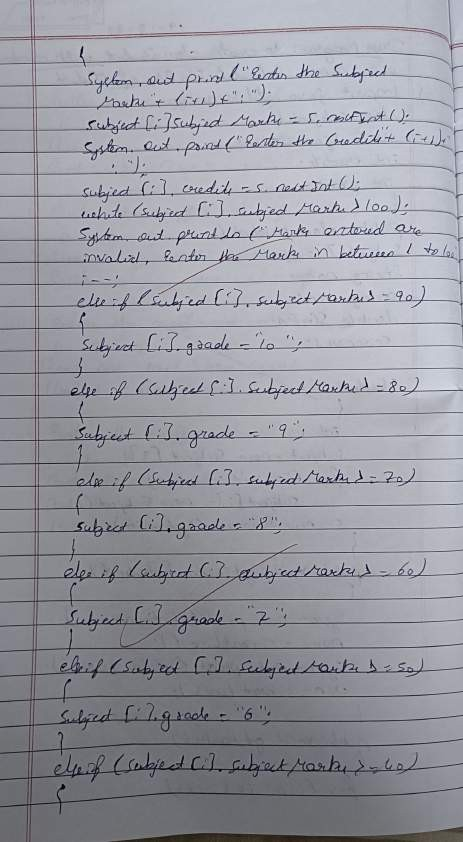 {
System.out print("Enter the Subject
Marks" + (i+1)+":");
Subject [i]Subject Marks = s.nextInt();
System.out.print("Enter the Credits"+ (i+1)+
: ");
subject [i].credits = s.nextInt();
while (subject [i].subject Marks > 100);
System.out println ("Marks entered are
invalid, Enter the Marks in between 1 to 100
i--;
else if (subject [i].subject Marks >= 90)
{
Subject [i].grade = "10";
}
else if (Subject [i].Subject Marks >= 80)
{
Subject [i].grade = "9";
}
else if (Subject [i].subject Marks >= 70)
{
subject [i].grade = "8";
}
else if (subject [i].subject Marks >= 60)
{
Subject [i] grade = "7";
}
else if (Subject [i].SubjectMarks >= 50)
{
Subject [i].grade = "6";
}
else if (Subject [i].subjectMarks >= 40)
{